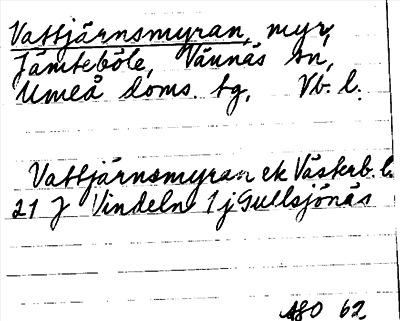 Vattjärnsmyran, myr,
Jämteböle, Vännäs sn,
Umeå doms. tg, Vb. l.
Vattjärnsmyran ek Västerb. l.
21 J Vindeln 1 j Gullsjönäs
ASO 62